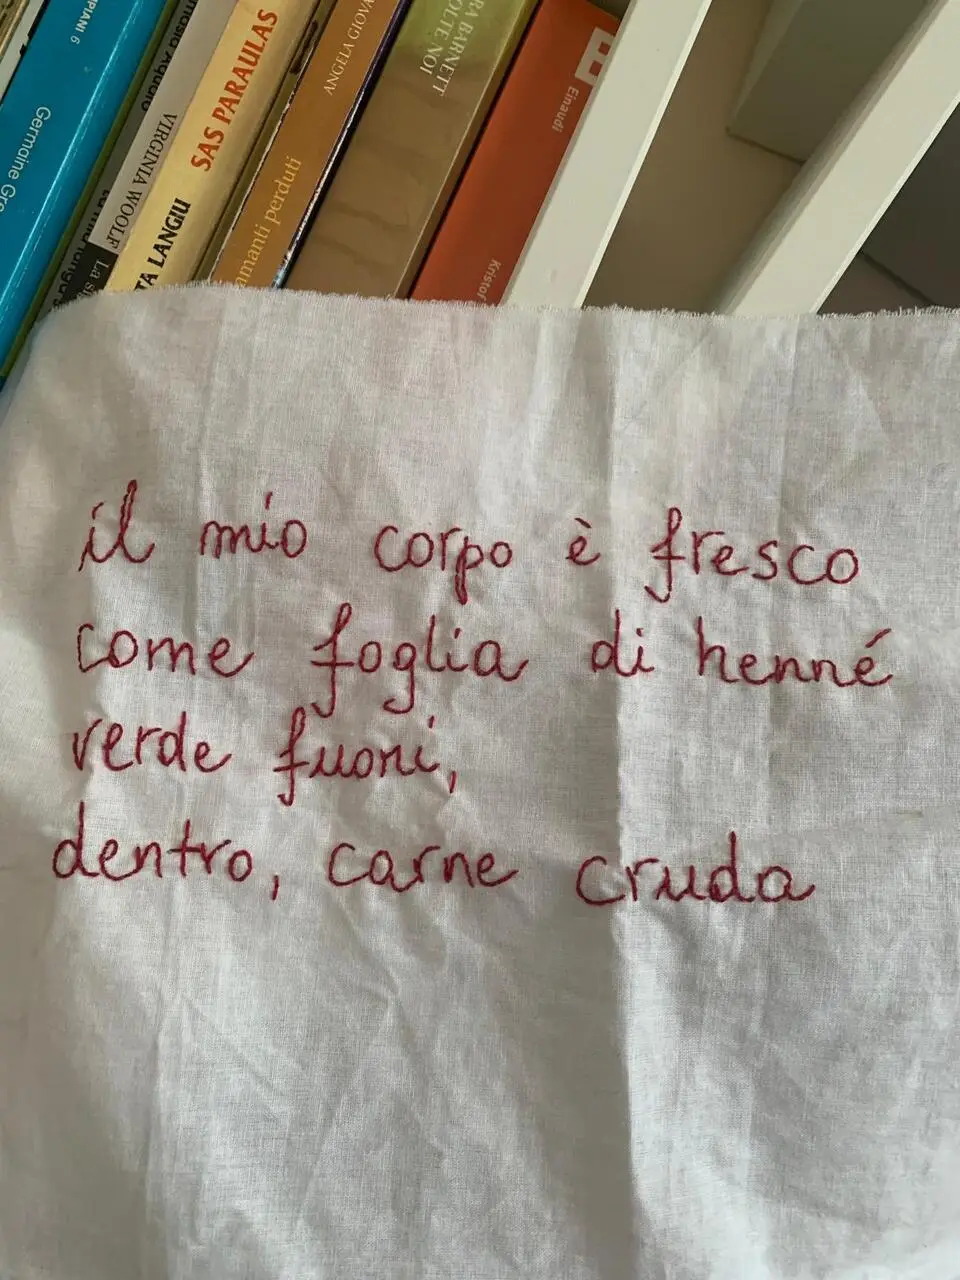 PIANI 6
Germaine Gre
VIRGINIA WOOLF
La s
SAS PARAULAS
TA LANGIU
ANGELA GIOVA
amanti perduti
RA BARNETT
OLTE NOI
Einaudi
Kristof
il mio corpo è fresco
come foglia di henné
verde fuori,
dentro, carne cruda